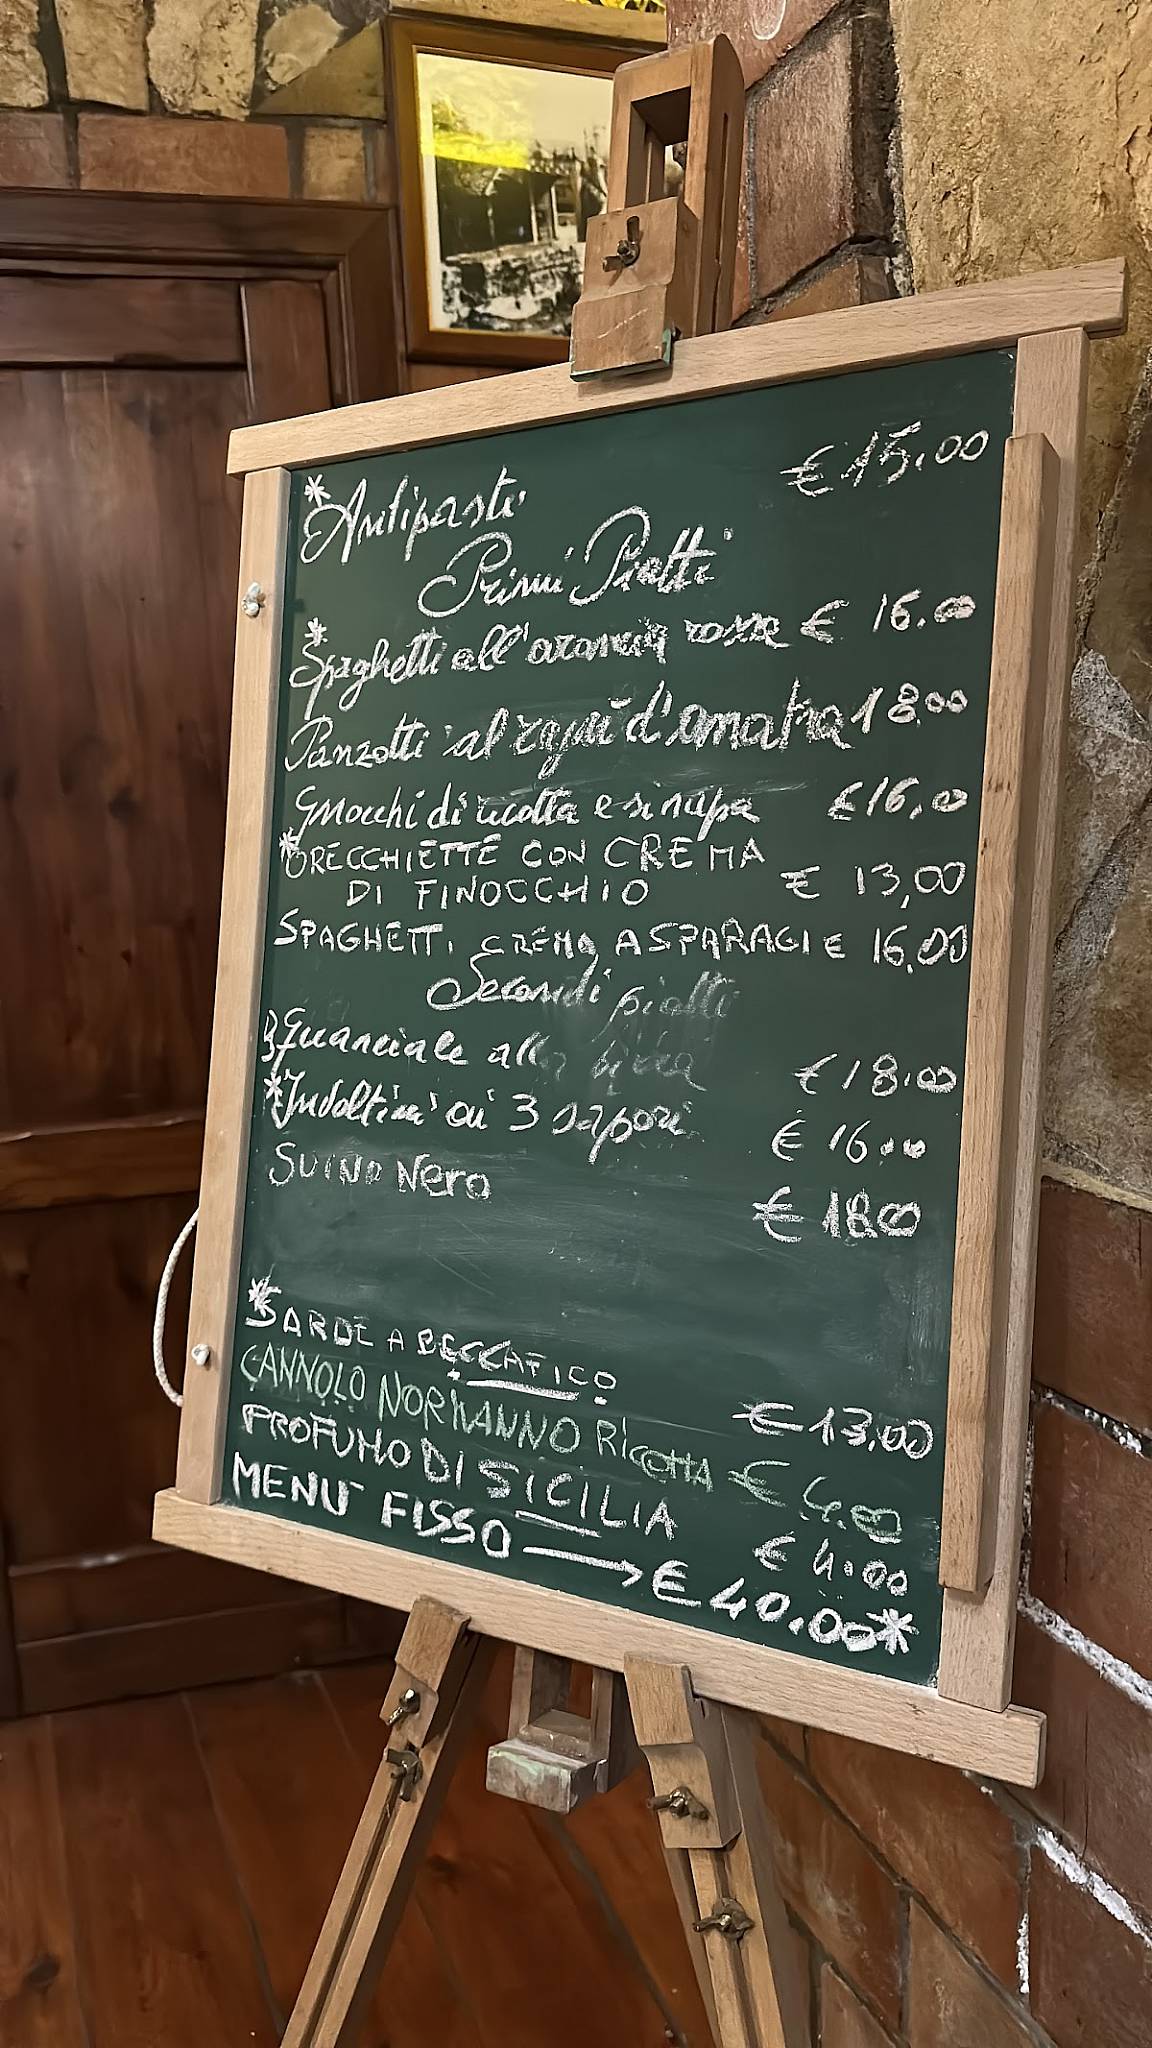 *Antipasti € 15,00
Primi Piatti
*Spaghetti all'arancia rossa € 16.00
Panzotti al ragù d'anatra 18.00
Gnocchi di ricotta e sinapa €16,0
*ORECCHIETTE CON CREMA
DI FINOCCHIO € 13,00
SPAGHETTI CREMA ASPARAGI € 16,00
Secondi piatti
Guanciale alla € 18.00
*Involtini ai 3 sapori € 16.00
SUINO NERO € 18.00
*SARDE A BECCAFICO € 13.00
CANNOLO NORMANNO RICOTTA € 4.00
PROFUMO DI SICILIA € 4.00
MENU FISSO → € 40.00*